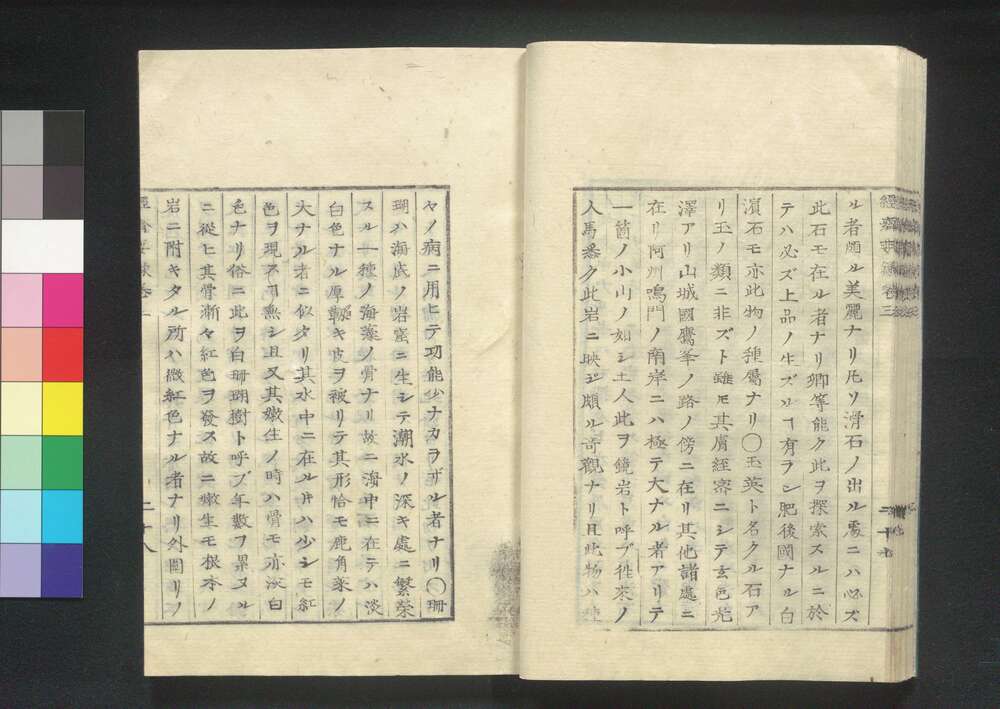 ル者頗ル美麗ナリ凡ソ滑石ノ出ル處ニハ必ズ
此石モ在ル者ナリ卿等能ク此ヲ探索スルニ於
テハ必ズ上品ノ生ズルヿ有ラン肥後國ナル白
濱石モ亦此物ノ種屬ナリ〇玉英ト名クル石ア
リ玉ノ類ニ非ズト雖モ其膚經密ニシテ玄色光
澤アリ山城國鷹峯ノ路ノ傍ニ在リ其他諸處ニ
在リ阿州鳴門ノ南岸ニハ極テ大ナル者アリテ
一箇ノ小山ノ如シ土人此ヲ鏡岩ト呼ブ徃來ノ
人馬悉ク此岩ニ映ジ頗ル奇觀ナリ且此物ハ
經濟要錄卷三
二十七
々ノ病ニ用ヒテ功能少ナカラザル者ナリ〇珊
瑚ハ海底ノ岩窟ニ生シテ潮水ノ深キ處ニ繁榮
スル一種ノ海藻ノ骨ナリ故ニ海中ニ在テハ淡
白色ナル厚キ皮ヲ被リテ其形恰モ鹿角菜ノ
大ナル者ニ似タリ其水中ニ在ル片ハ少シモ紅
色ヲ現スヿ無シ且又其嫩生ノ時ハ骨モ亦淡白
色ナリ俗ニ此ヲ白珊瑚樹ト呼ブ年數ヲ累ヌル
ニ從ヒ其骨漸々紅色ヲ發ス故ニ嫩生モ根本ノ
岩ニ附キタル所ハ微紅色ナル者ナリ外圍リノ
二十八